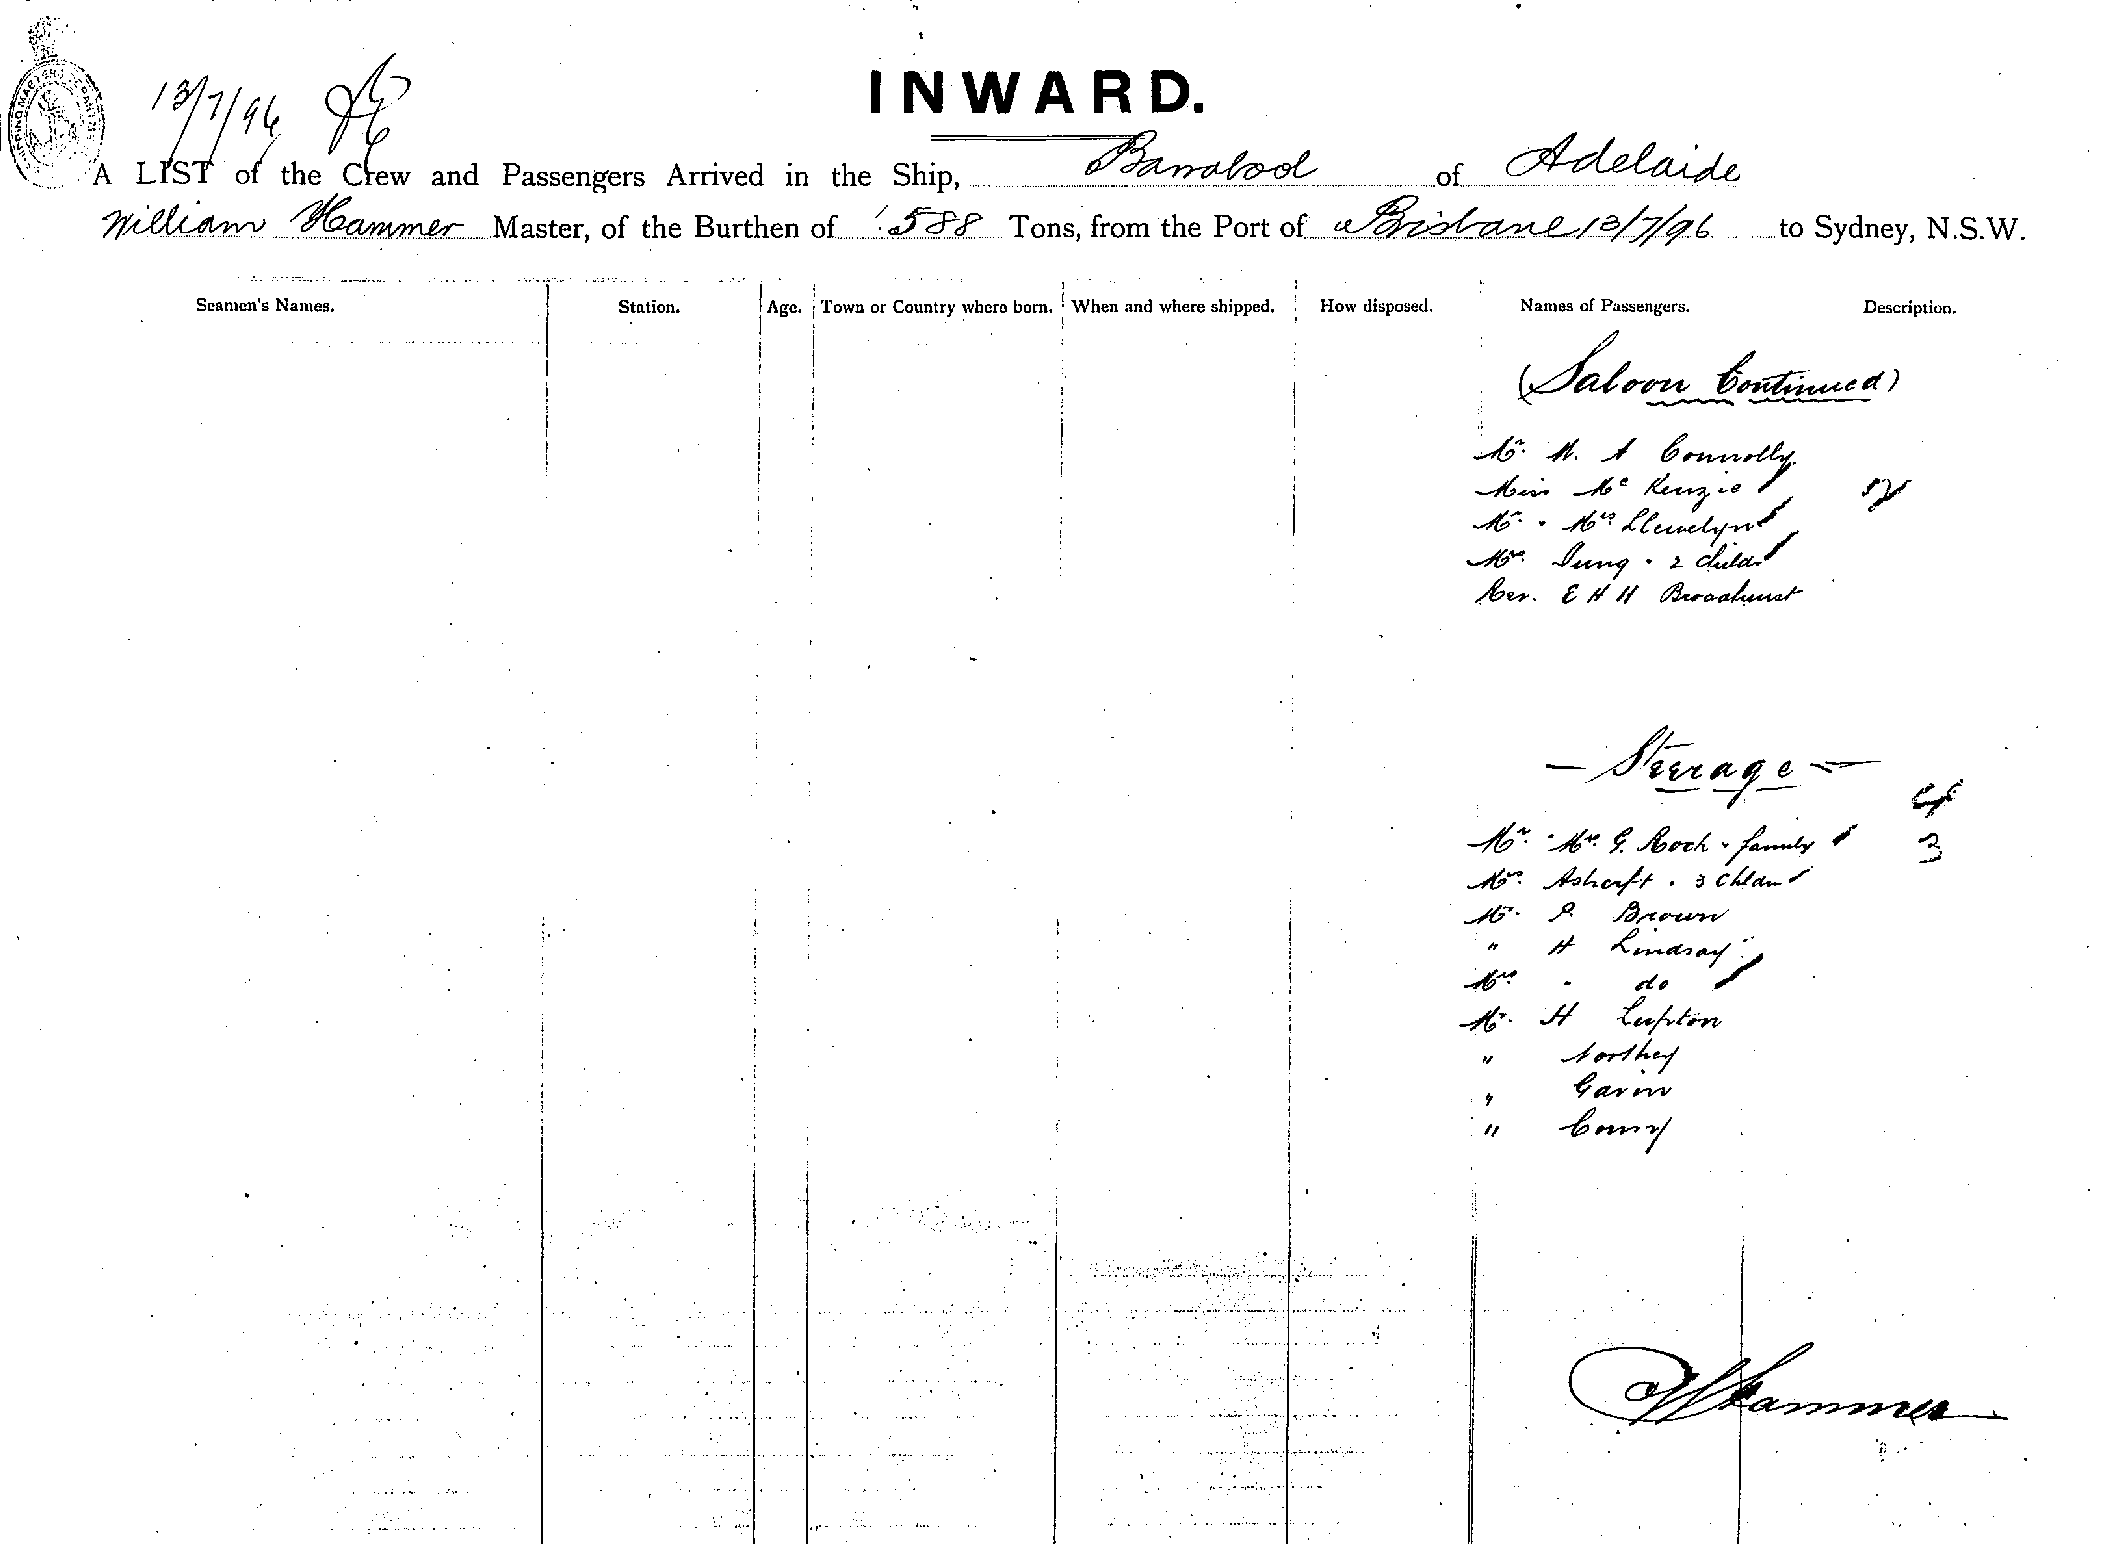 INWARD.
13/7/96
A LIST of the Crew and Passengers Arrived in the Ship, Barrabool of Adelaide
William Hammer Master, of the Burthen of 588 Tons, from the Port of Brisbane 13/7/96 to Sydney, N.S.W.
Seamen's Names. Station. Age. Town or Country where born. When and where shipped. How disposed. Names of Passengers. Description.
(Saloon Continued)
Mr. W. A Connolly
Miss Mc Kenzie
Mr. " Mrs Llewelyn
Mrs. Jung " 2 child
Rev. E H H Broadhurst
— Steerage —
Mr. " Mrs. G. Roch " family 3
Mrs. Ashcrft " 3 Chldn
Mr. Brown
" H Lindsay
Mrs " do
Mr. H Lupton
" Northey
" Gavin
"
W Hammer